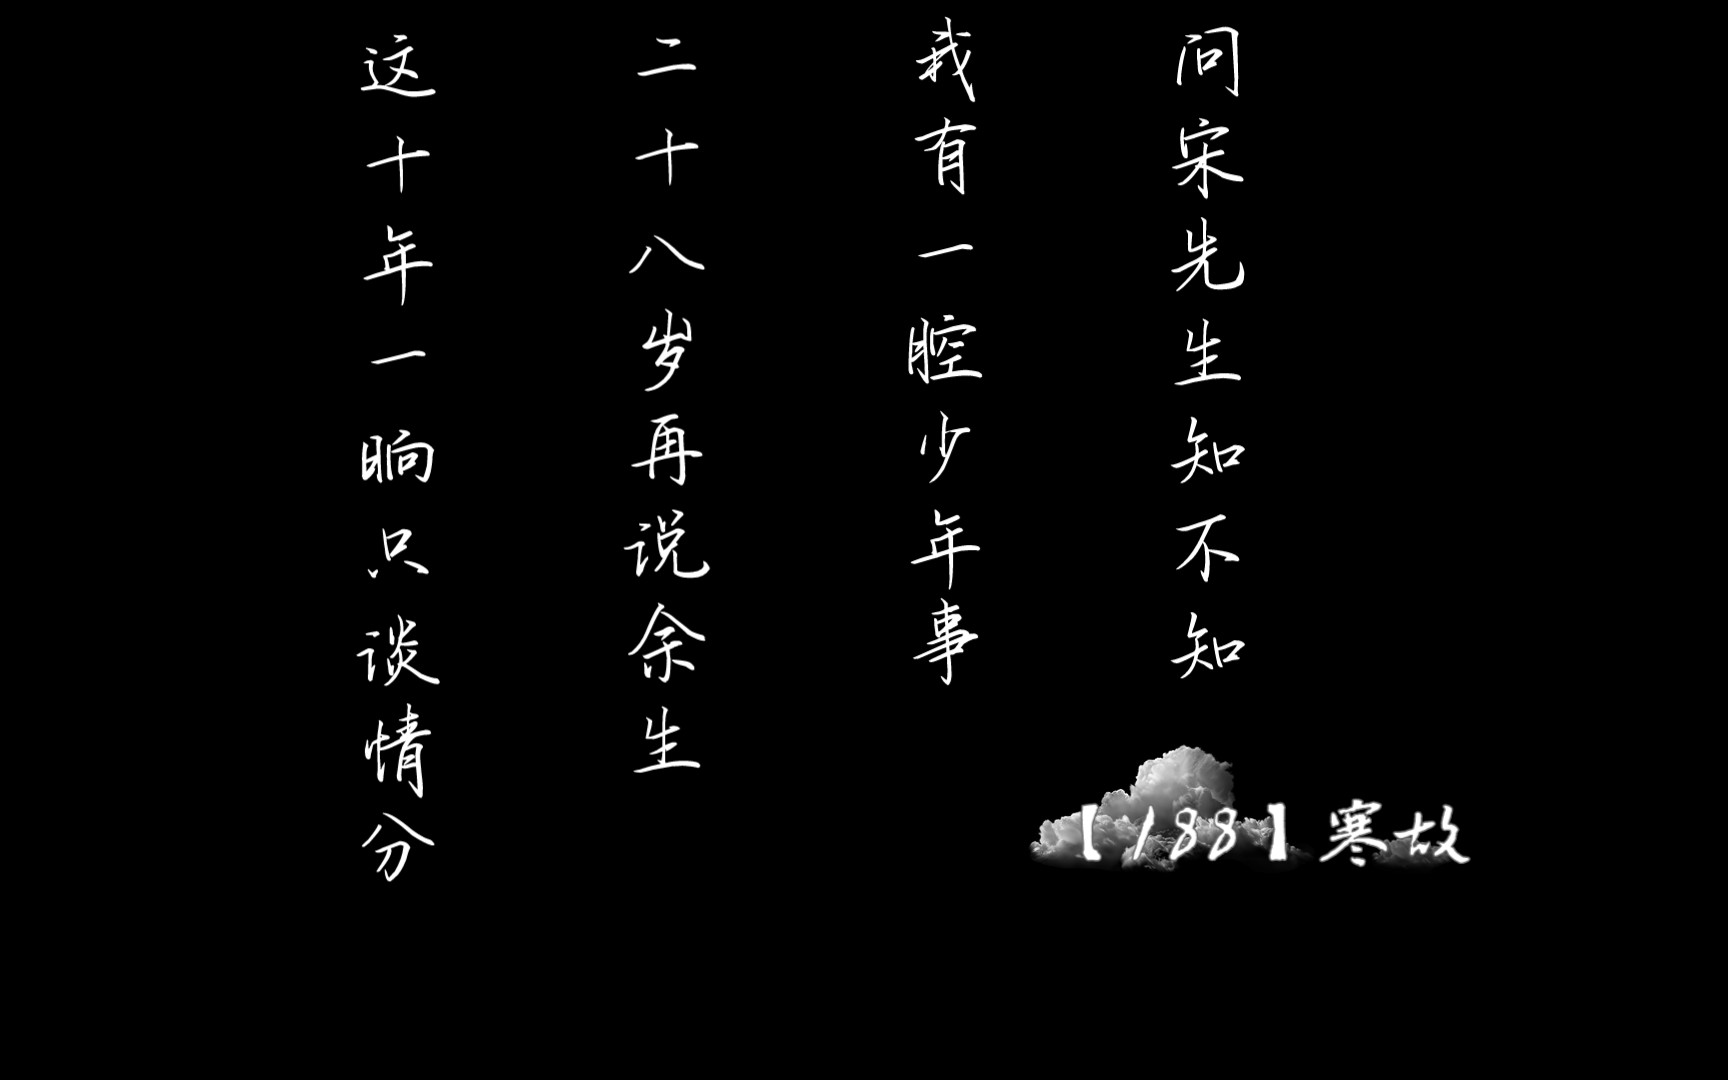 问宋先生知不知
我有一腔少年事
二十八岁再说余生
这十年一晌只谈情分
【188】寒故